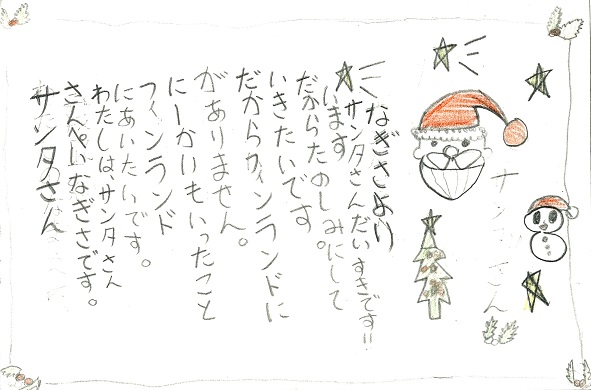 サンタさん
さんぺいなぎさです。
わたしはサンタさん
にあいたいです。
フィンランド
に一かいもいったこと
がありません。
だからフィンランドに
いきたいです。
だからたのしみにして
います
サンタさんだいすきです!!
なぎさより
サンタさん